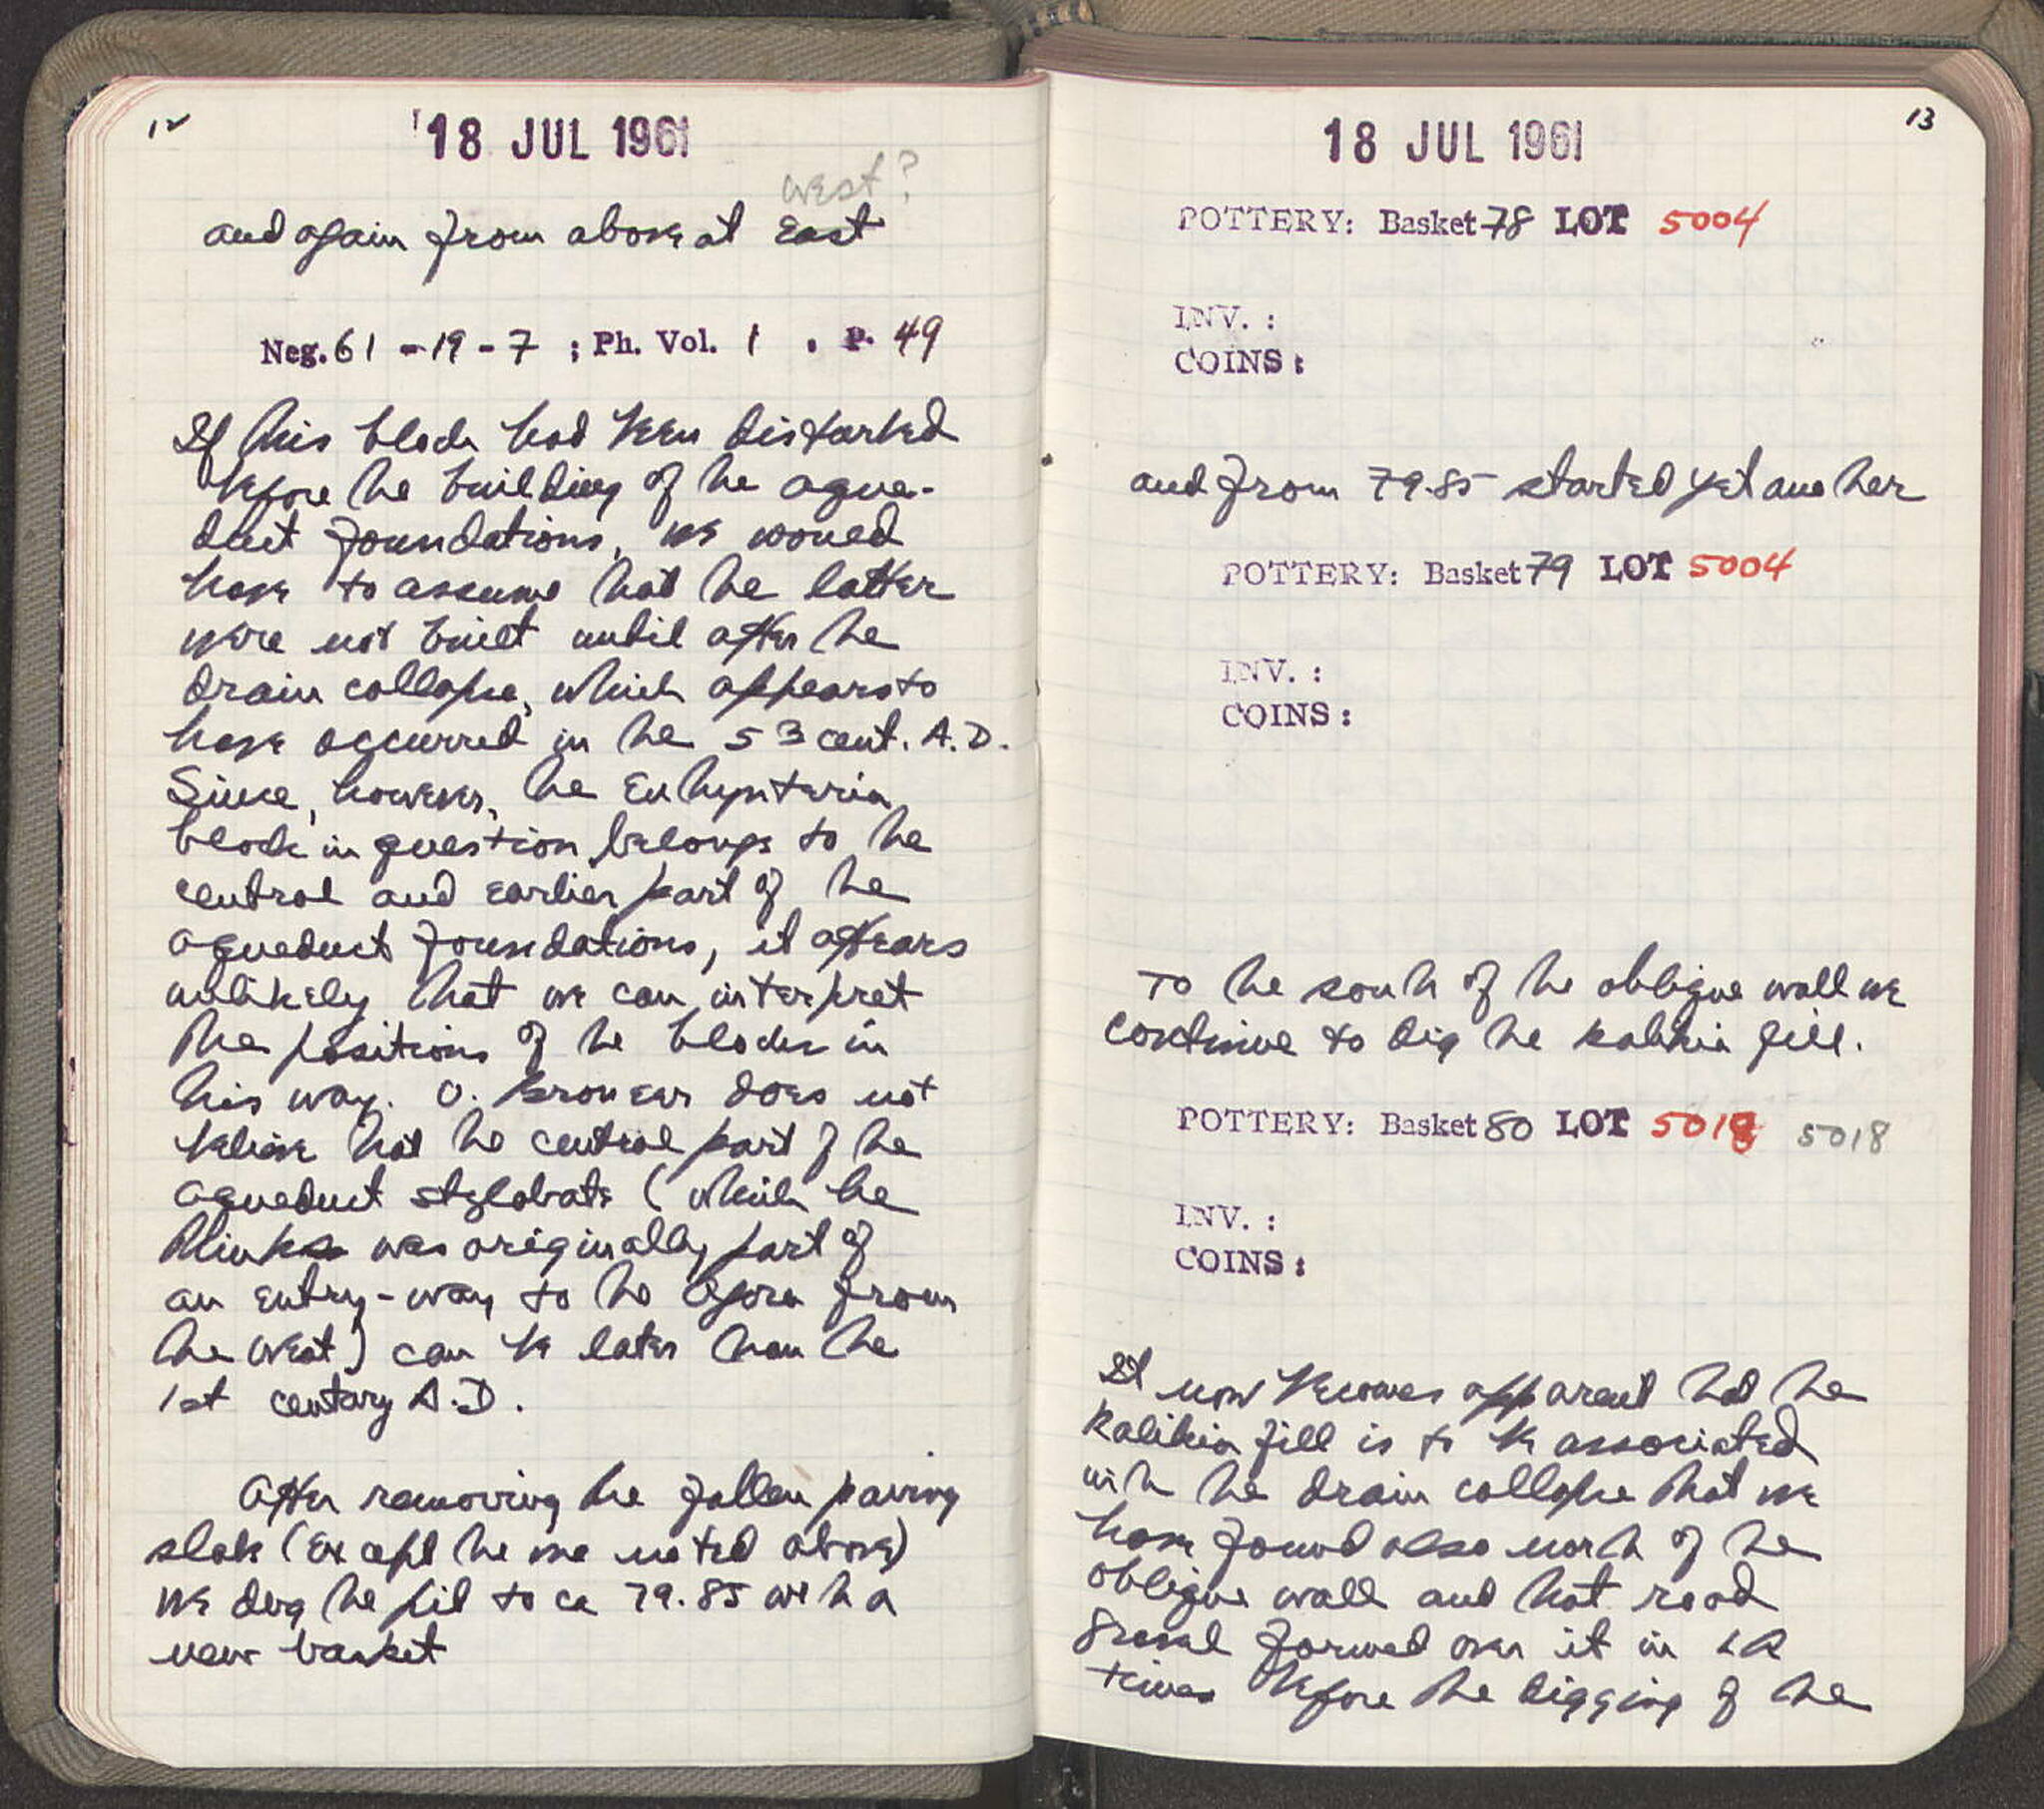 12
18 JUL 1961
west?
and again from above at East
Neg. 61 - 19 - 7 ; Ph. Vol. 1 . P. 49
If this block had been disturbed
before the building of the aque-
duct foundations, we would
have to assume that the latter
were not built until after the
drain collapse, which appears to
have occurred in the 53 cent. A.D.
Since, however, the Euthynteria
block in question belongs to the
central and earlier part of the
aqueduct foundations, it appears
unlikely that we can interpret
the positions of the blocks in
this way. O. Broneer does not
believe that the central part of the
aqueduct stylobate (which he
thinks was originally part of
an entry-way to the Agora from
the West) can be later than the
1st century A.D.
After removing the fallen paving
slabs (except the one noted above)
we dug the fill to ca 79.85 with a
new basket
13
18 JUL 1961
POTTERY: Basket 78 LOT 5004
INV. :
COINS :
and from 79.85 started yet another
POTTERY: Basket 79 LOT 5004
INV. :
COINS :
To the south of the oblique wall we
continue to dig the kalikia fill.
POTTERY: Basket 80 LOT 5018 5018
INV. :
COINS :
It now becomes apparent that the
kalikia fill is to be associated
with the drain collapse that we
have found also north of the
oblique wall and that road
gravel formed over it in LR
times before the digging of the